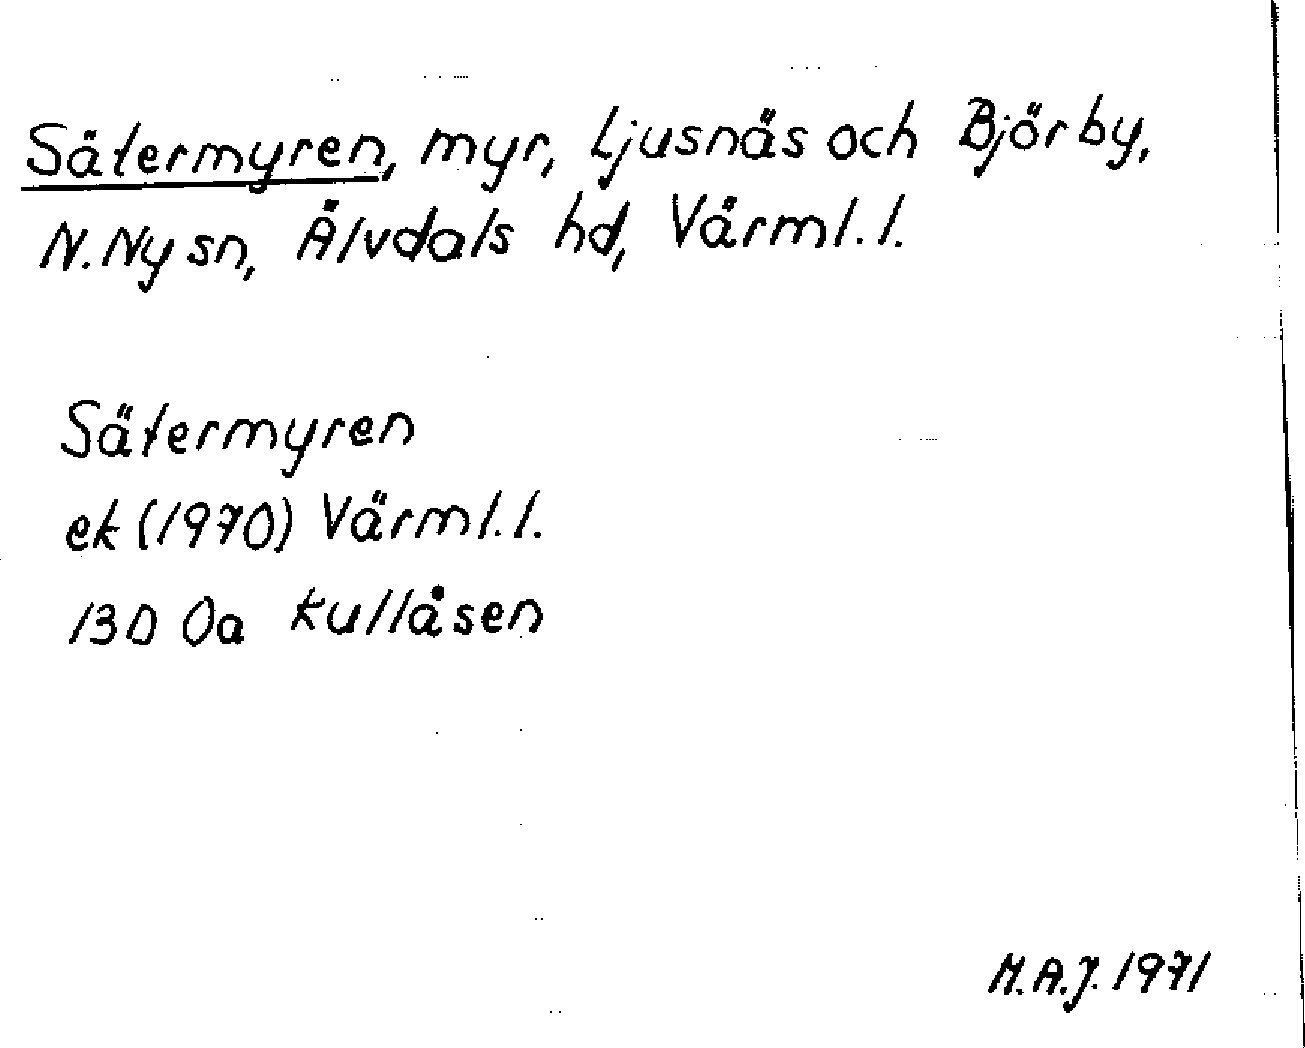 Sätermyren, myr, Ljusnäs och Björby,
N. Ny sn, Älvdals hd, Värml. l.
Sätermyren
ek (1970) Värml. l.
13D 0a Kullåsen
M.A.J. 1971